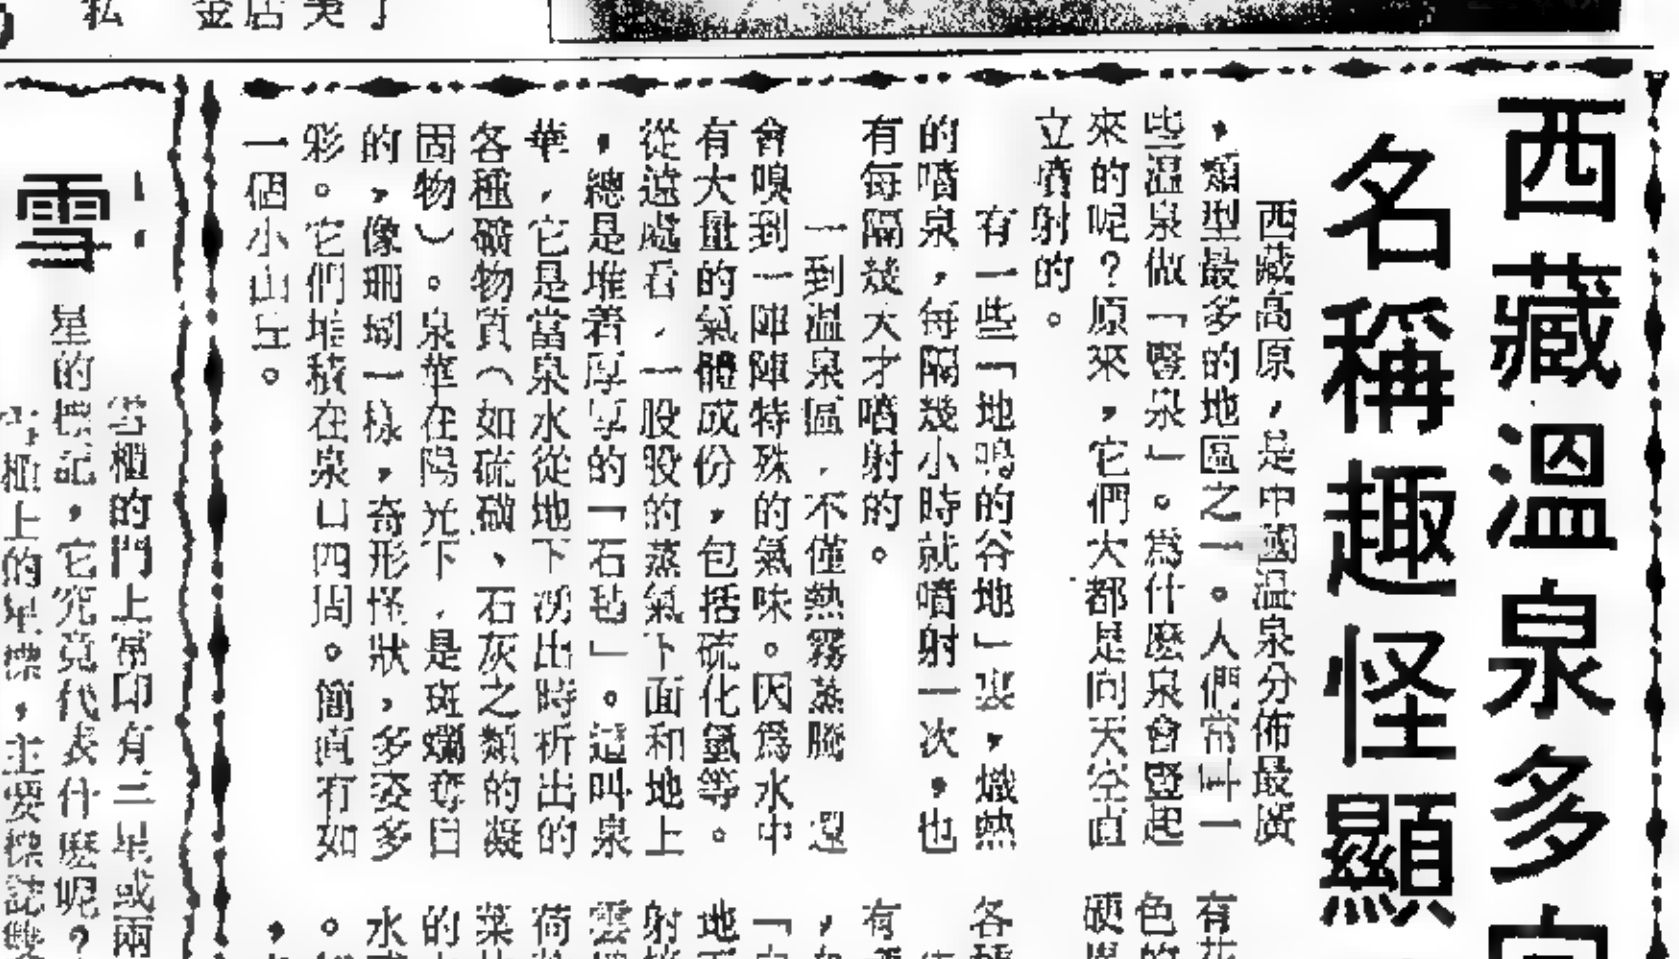 西藏溫泉多
名稱趣怪顯
西藏高原，是中國溫泉分佈最廣
，類型最多的地區之一。人們常叫一
些溫泉做「豎泉」。爲什麽泉會豎起
來的呢？原來，它們大都是向天空直
立噴射的。
有一些「地鳴的谷地」裏，熾熱
的噴泉，每隔幾小時就噴射一次，也
有每隔幾天才噴射的。
一到溫泉區，不僅熱霧蒸騰 還
會嗅到一陣陣特殊的氣味。因爲水中
有大量的氣體成份，包括硫化氫等。
從遠處看，一股股的蒸氣下面和地上
，總是堆着厚厚的「石毡」。這叫泉
華，它是當泉水從地下湧出時析出的
各種礦物質（如硫磺、石灰之類的凝
固物）。泉華在陽光下，是斑斕奪目
的，像珊瑚一樣，奇形怪狀，多姿多
彩。它們堆積在泉口四周。簡直有如
一個小山丘。
有
色的
硬
各種
有
，
「
地
射
雲
荷
葉
的
水
。
，
雪
雪櫃的門上常印有三星或兩
星的標記，它究竟代表什麽呢？
雪櫃上的星標，主要標誌
金店美了
私